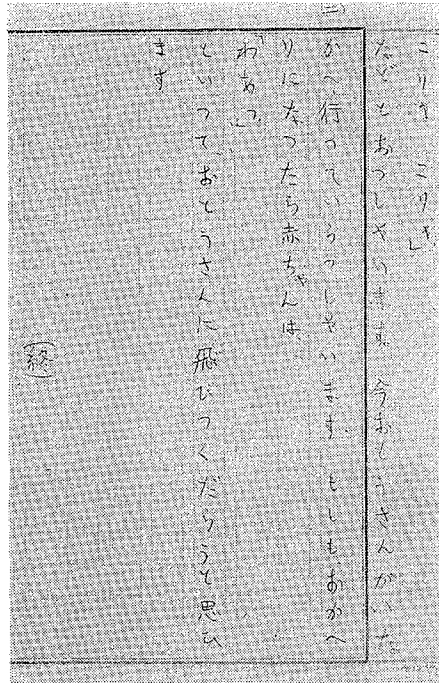 こりさ こりさ」
などとおつしやいます。今おとうさんがいな
かへ行つていらつしやいます。もしも、おかへ
りになつたら赤ちやんは、
「わあつ」
といつておとうさんに飛びつくだらうと思ひ
ます
(終)